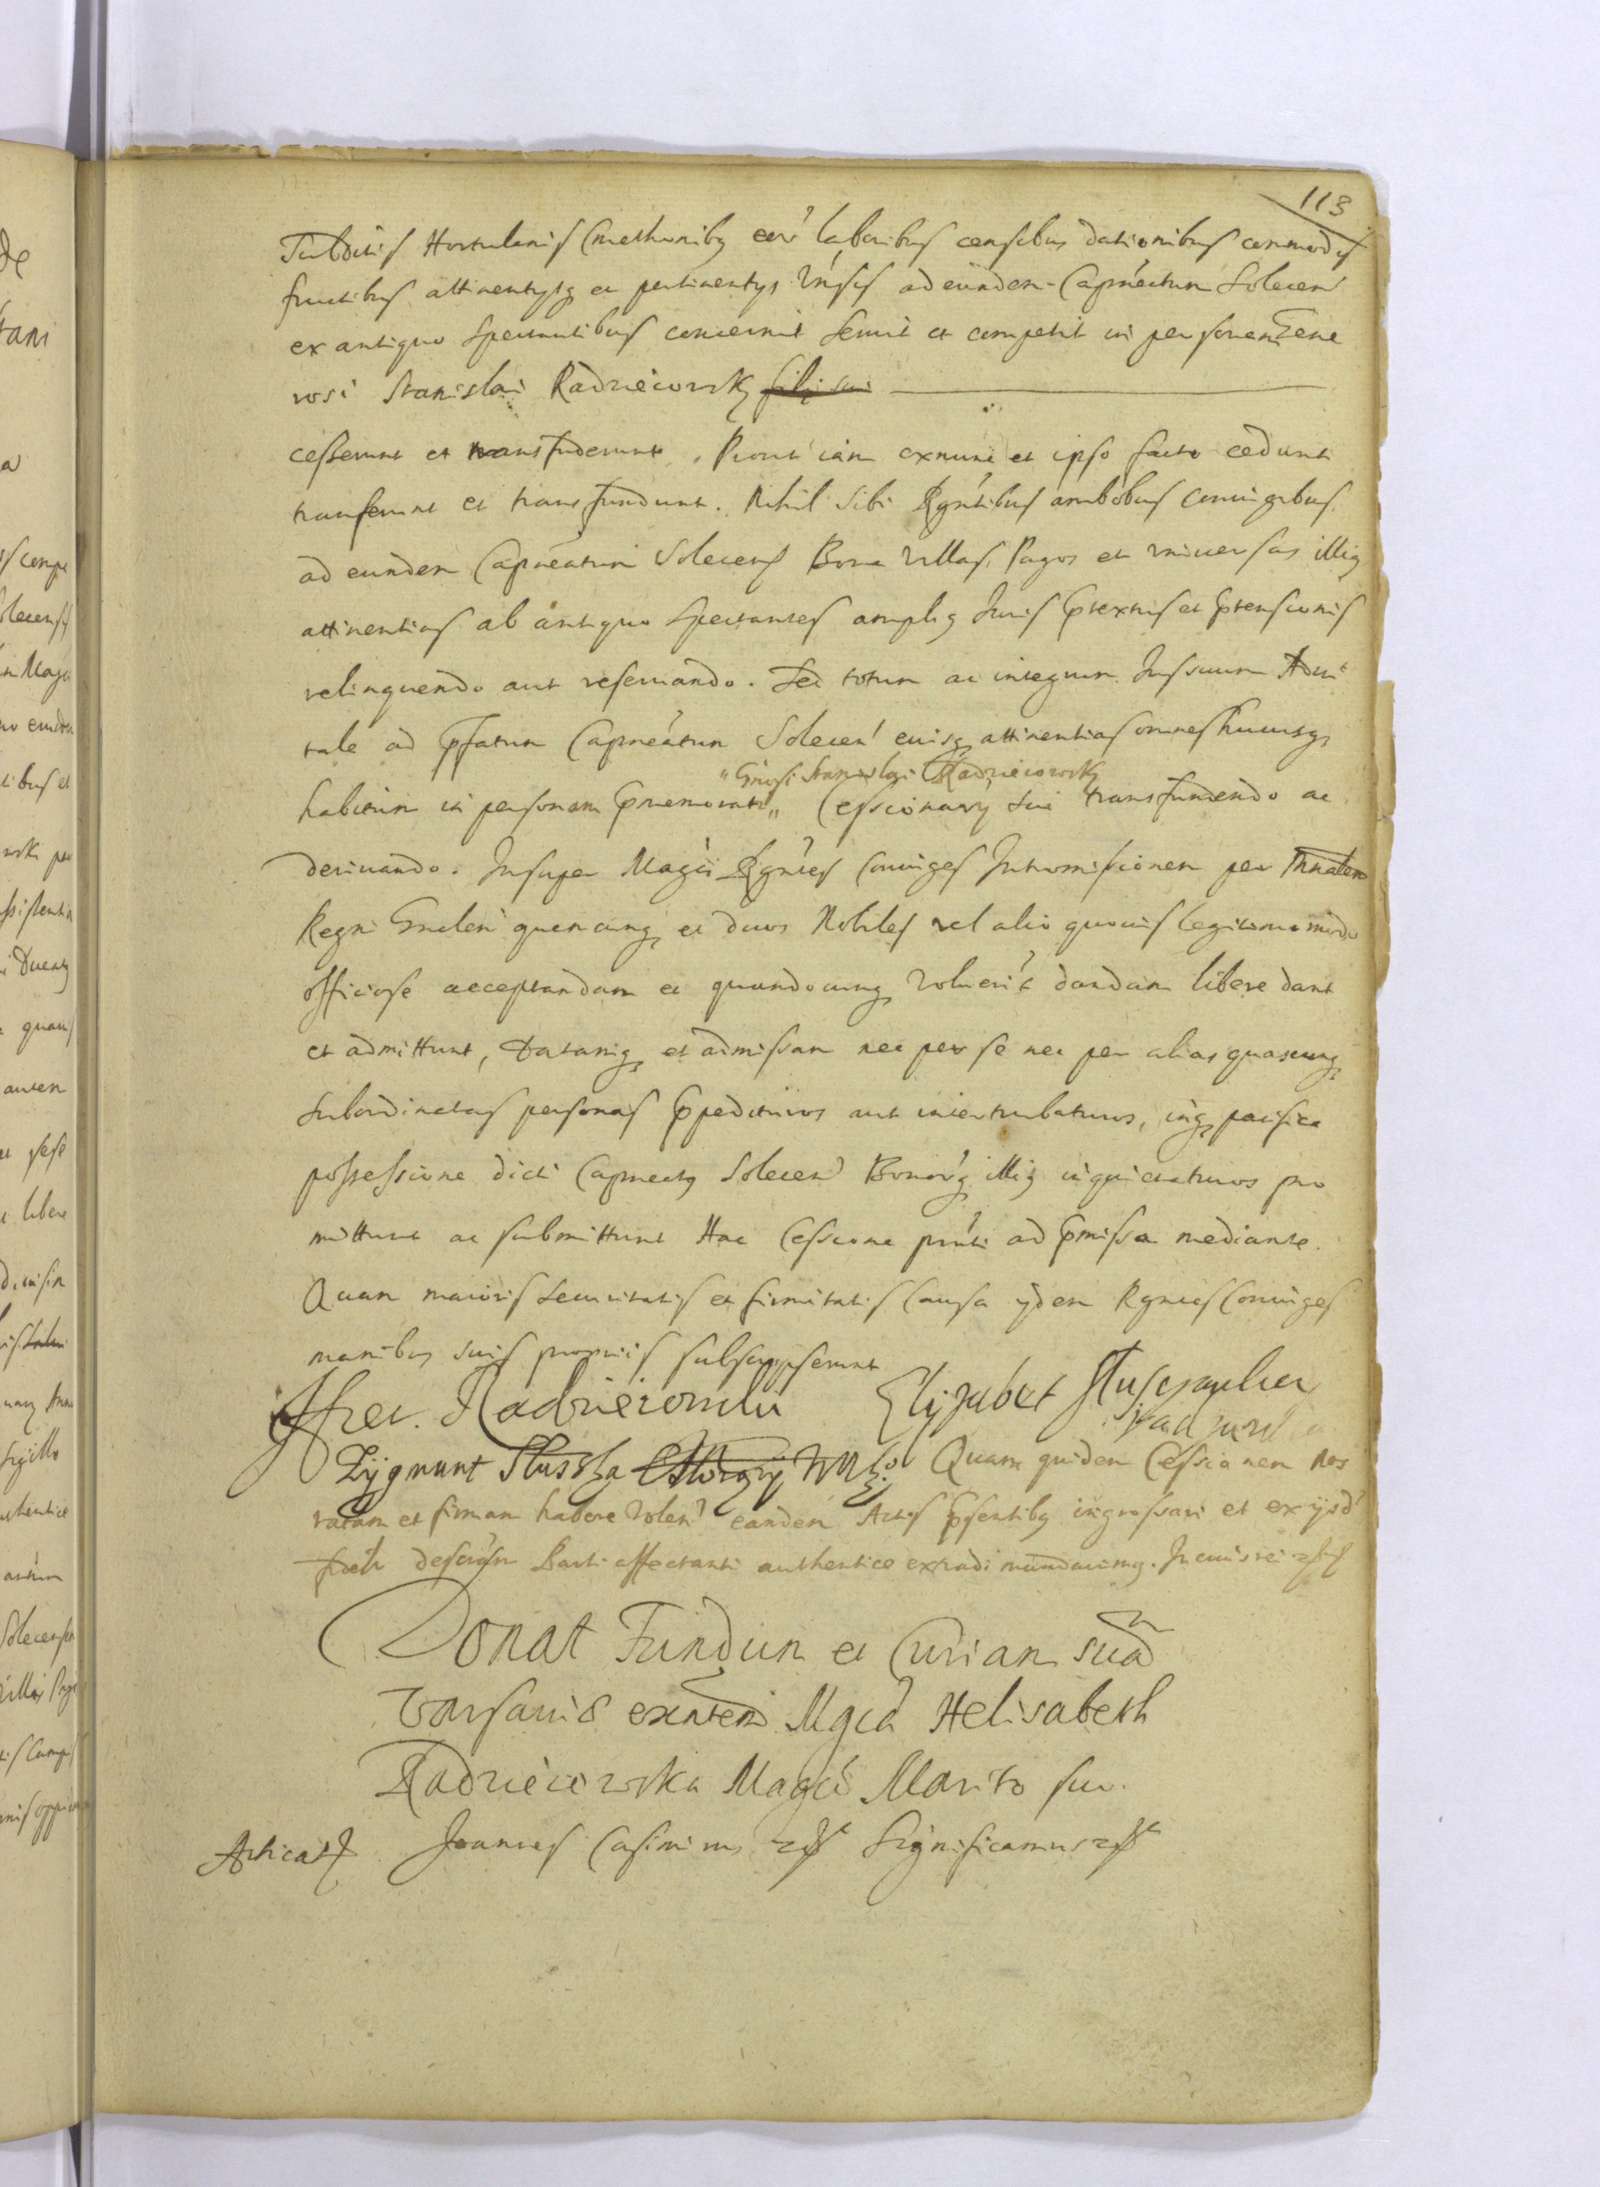 113
Subditis Hortulanis Cmethonibq eor' laboribus censibus dationibus commodis
fructibus attinentysq et pertinentys Vnisis ad eundem Capneatum Solecen'
ex antiquo spectantibus concernit servit et competit in personam Gene
rosi Stanislai Radzieiowsky filij sui
cesserunt et transfuderunt. Prout iam exnunc et ipso facto cedunt
transferunt et transfundunt. Nihil sibi Rgntibus ambobus Coniugibus
ad eundem Capneatum Solecens Bona Villas, Pagos et vniuersas illiq
attinentias ab antiquo spectantes ampliq Juris Ptextus et Ptensionis
relinquendo aut reseruando. Sed totum ac integrum Jus suum Adui
tale ad Pfatum Capneatum Solecen' eiusq attinentias omnes hucusq
"Gnosi Stanislai Radzieiowsky
habitum in personam Pmemorati" Cessionary sui transfundendo ac
deriuando. Insuper Magci Rgntes Coniuges Intromissionem per Mnalem
Regni Gnalem quemcunq et duos Nobiles vel alio quouis legitimo modo
officiose acceptandam et quandocunq voluerit dandam libere dant
et admittunt, Datamq et admissam nec per se nec per alias quascunq
subordinatas personas Ppedituros aut interturbaturos, inq pacifica
possessione dicti Capneatq Solecen' Bonorq illiq inquietaturos pro
mittunt ac submittunt Hac Cessione pnti ad Pmissa mediante.
Quam maioris securitatis et firmitatis causa ydem Rgntes Coniuges
manibq suis propriis subscripserunt
Radzieiowski Elzjabet Slusczanka
Radzieio
Zygmunt Słuszka Quam quidem Cessionem nos
ratam et firmam habere volen' eandem Actis Psentibq ingrossari et ex ijsd'
descrip Parti affectanti authentice extradi mandauimq. In cuius rei
Donat Fundum et Curiam suã
Varsauiæ existen' Mgca Helisabeth
Radzieiowska Magco Marito suo.
Joannes Casimirus Significamus